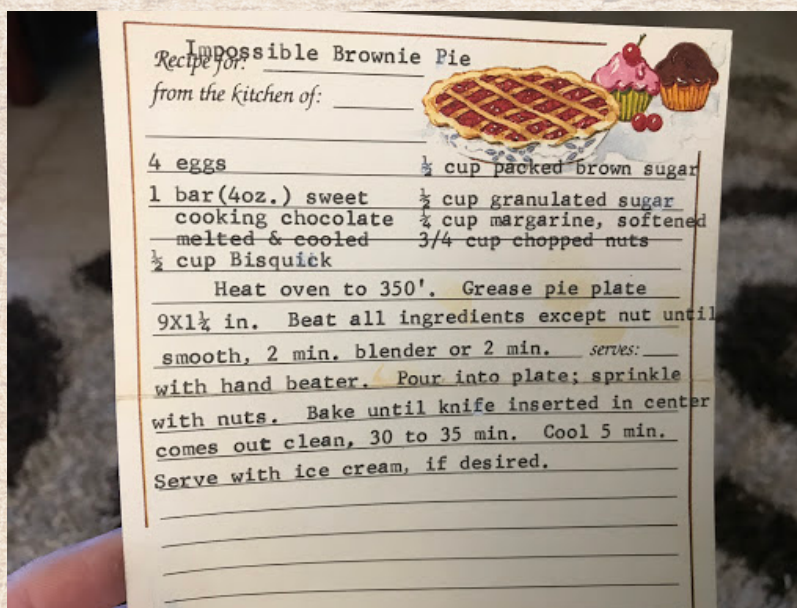 Impossible Brownie Pie
Recipe for:
from the kitchen of:
4 eggs
1 bar(4oz.) sweet
cooking chocolate
melted & cooled
½ cup Bisquick
½ cup packed brown sugar
½ cup granulated sugar
¼ cup margarine, softened
3/4 cup chopped nuts
Heat oven to 350'. Grease pie plate
9X1¼ in. Beat all ingredients except nut until
smooth, 2 min. blender or 2 min. serves:
with hand beater. Pour into plate; sprinkle
with nuts. Bake until knife inserted in center
comes out clean, 30 to 35 min. Cool 5 min.
Serve with ice cream, if desired.